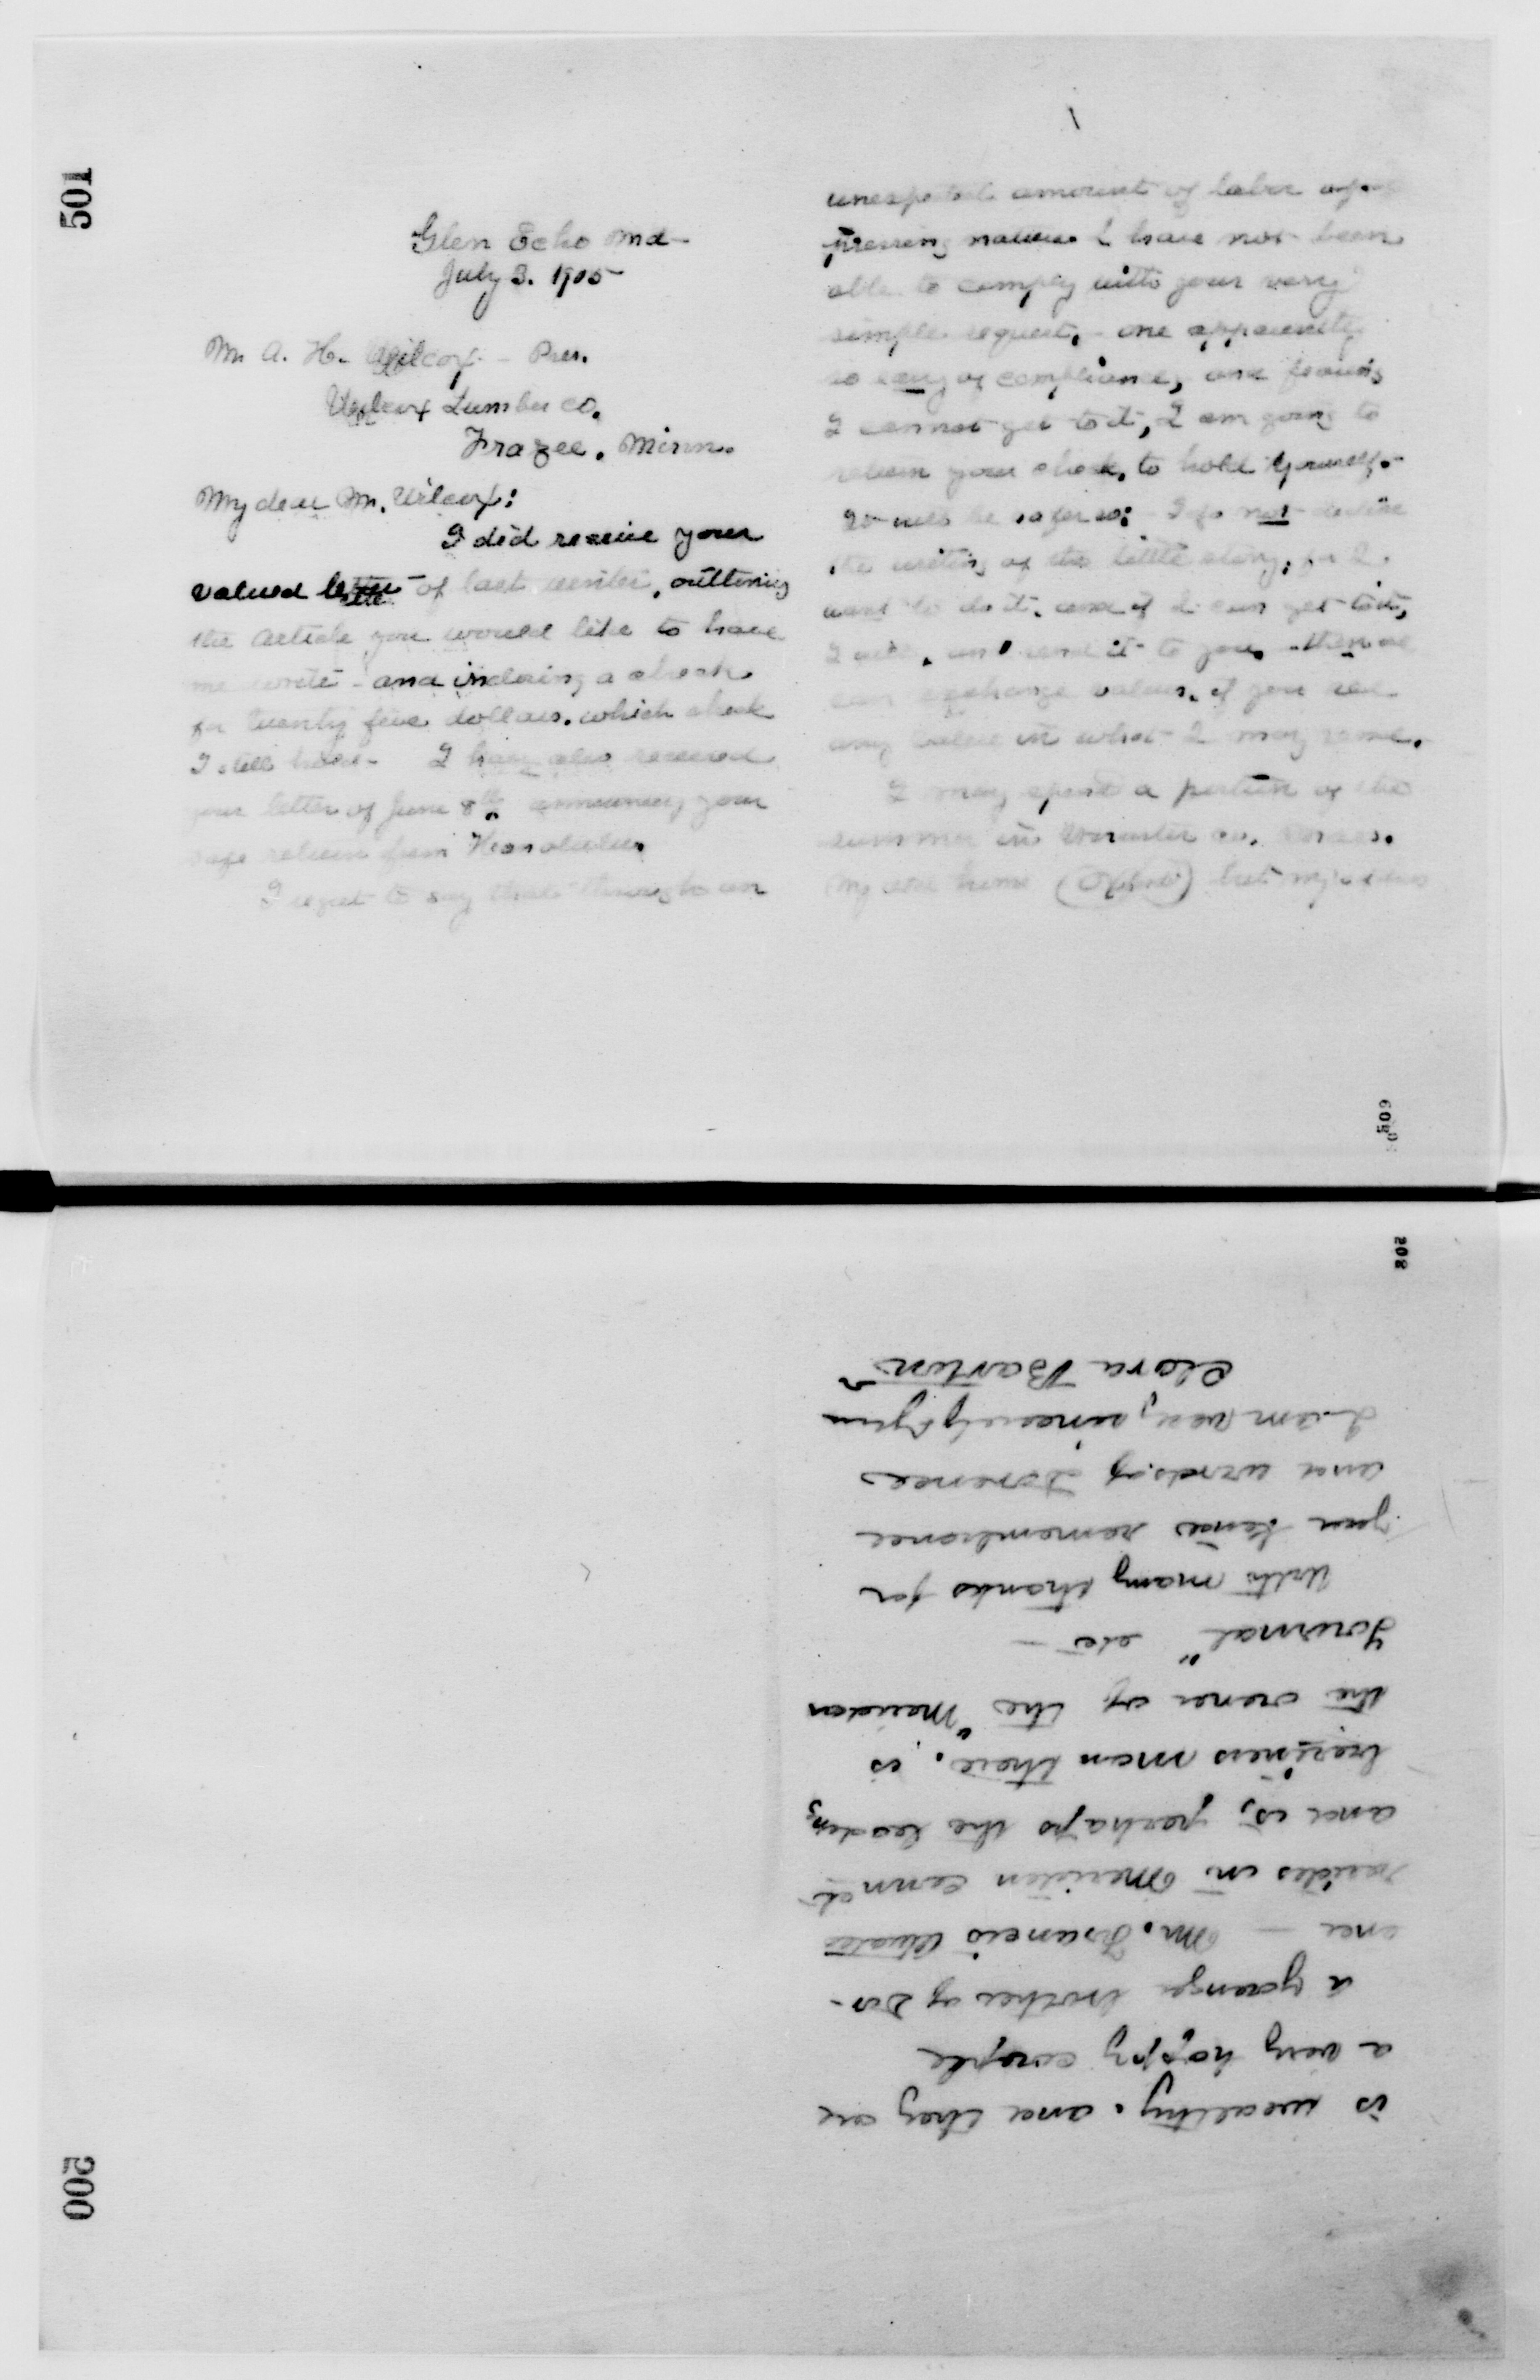 501
Glen Echo Md
July 3. 1905
Mr. A. H. Wilcox - Pres.
Wilcox Lumber Co.
Frazee. Minn.
My dear Mr. Wilcox:
I did receive your
valued letter of last winter, outlining
the article you would like to have
me write - and inclosing a check
for twenty five dollars. which check
I still hold - I have also received
your letter of June 8th announcing your
safe return from Honolulu.
I regret to say that through an
unexpected amount of labor of a
pressing nature I have not been
able to comply with your very
simple request, - one apparently
so easy of compliance, and fearing
I cannot get to it, I am going to
return your check, to hold yourself -
It will be safer so: - I do not decline
the writing of the little story; for I
want to do it. and if I can get to it,
I will, and send it to you. then we
can exchange values. if you see
any value in what I may send.
I may spend a portion of the
summer in Worcester Co. Mass.
My old home (Oxford) but my address
509
508
is wealthy. and they are
a very happy couple
A younger brother of Dor-
ence - Mr. Francis Atwater
resides in Meriden Connct
and is, perhaps the leading
business man there. is
the owner of the "Meriden
Journal" etc -
With many thanks for
your kind remembrance
and words of Dorence
I am very sincerely yours
Clara Barton
500